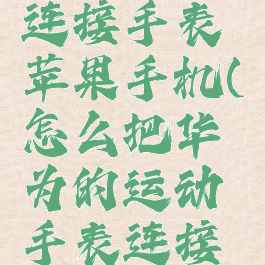 连接手表
苹果手机(
怎么把华
为的运动
手表连接